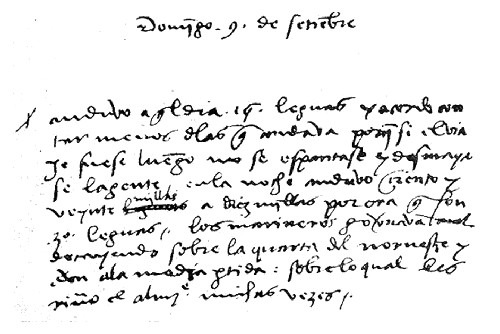 Domīgo .9. de setiēbre
x anduvo aql dia .15. leguas y acordo con
tar menos dlas q̄ andava porq̄ si el via
je fuese luēgo no se espantase y desmaya
se la gente . en la noche anduvo çiento y
veynte millas a diez millas por ora q̄ son
30. leguas . los marineros governavā mal
decayendo sobre la quarta del norueste y
avn ala media ptida : sobre lo qual les
riño el almi̅e muchas vezes .